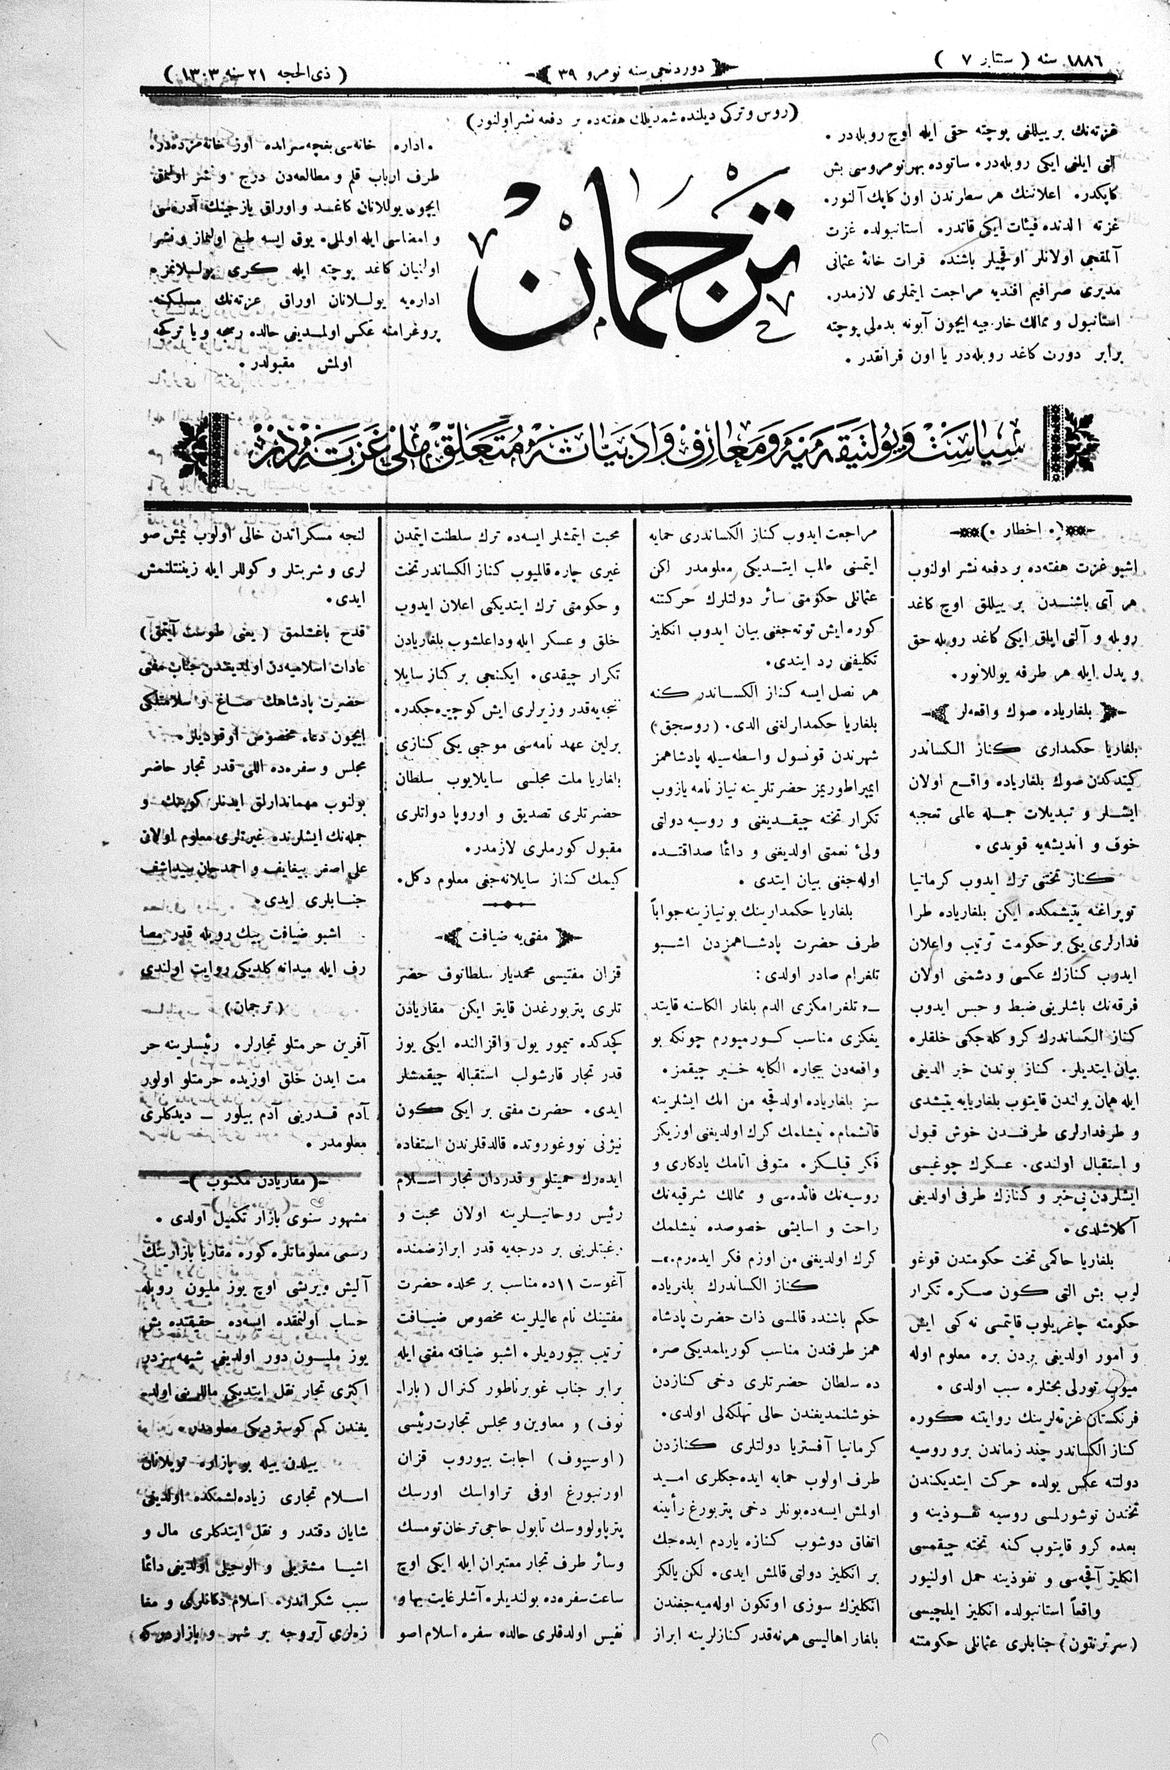 ١٨٨٦ سنه ( ستابر ٧ )
دوردنجی سنه نومرو ٣٩
( ذی الحجه ٢١ سنه ١٣٠٣ )
(روس و ترکی دیلنده شمدیلك هفته‌ده بر دفعه نشر اولنور)
غزته‌نك بر ییللغی پوچته حقی ایله اوچ روبله‌در .
آلتی ایلغی ایکی روبله‌در . ساتوده بهر نومروسی بش
کاپکدر . اعلاننك هر سطرندن اون کاپك آلنور .
غزته الدنده فیئات ایکی قاتدر . استانبولده غزت
آلمقجی اولانلر اوقچیلر باشنده قرات خانۀ عثمانی
مدیری صرافیم افندیه مراجعت ایتملری لازمدر .
استانبول و ممالك خارجیه ایچون آبونه بدلی پوچته
برابر دورت کاغد روبله‌در یا اون فرانقدر .
ترجمان
. اداره خانه‌سی بغچه سرایده اوز خانه مزده‌در
طرف ارباب قلم و مطالعه‌دن درج و نشر اولنمق
ایچون یوللانان کاغد و اوراق یازجینك آدرسی
و امضاسی ایله اولملی . یوق ایسه طبع اولنماز و نشر
اولنمیان کاغد پوچته ایله کری یوللانمز
اداره‌یه یوللانان اوراق غزته‌نك مسلکنه
پروغرامنه عکس اولمدیغی حالده رسجه و یا ترکجه
اولمش مقبولدر .
سیاست و پولتیقه منیه و معارف و ادبیاته متعلق ملی غزته‌در
(٠ اخطار ٠)
اشبو غزت هفته‌ده بر دفعه نشر اولنوب
هر آی باشندن بر ییللق اوچ کاغد
روبله و آلتی ایلق ایکی کاغد روبله حق
و بدل ایله هر طرفه یوللانور .
بلغاریاده صوك واقعه‌لر
بلغاریا حکمداری کناز الکساندر
کیتدکدن صوك بلغاریاده واقع اولان
ایشلر و تبدیلات جمله عالمی تعجبه
خوف و اندیشه‌یه قویدی .
کناز تختی ترك ایدوب کرمانیا
توپراغنه یتیشمکده ایکن بلغاریاده طرا
فدارلری یکی بر حکومت ترتیب و اعلان
ایدوب کنازك عکسی و دشمنی اولان
فرقه‌نك باشلرینی ضبط و حبس ایدوب
کناز الکساندرك کرو کله‌جکی خلقلره
بیان ایتدیلر . کناز بوندن خبر الدیغی
ایله همان یراندن قایتوب بلغاریایه یتیشدی
و طرفدارلری طرفندن خوش قبول
و استقبال اولندی . عسکرك چوغیسی
ایشلردن بی‌خبر و کنازك طرفی اولدیغی
آکلاشلدی .
بلغاریا حاکمی تخت حکومتدن قوغو
لوب بش التی کون صکره تکرار
حکومته چاغریلوب قایتمسی نه کی ایش
و امور اولدیغی بردن بره معلوم اوله
میوب تورلی بحثلره سبب اولدی .
فرنکستان غزته‌لرینك روایتنه کوره
کناز الکساندر چند زماندن برو روسیه
دولتنه عکس یولده حرکت ایتدیکندن
تختدن توشورلمسی روسیه نفوذینه و
بعده کرو قایتوب کنه تخته چیقمسی
انکلیز آقچه‌سی و نفوذینه حمل اولنیور
واقعاً استانبولده انکلیز ایلچیسی
(سر ترنتون) جنابلری عثمانلی حکومتنه
مراجعت ایدوب کناز الکساندری حمایه
ایتمنی طلب ایتدیکی معلومدر لکن
عثمانلی حکومتی سائر دولتلرك حرکتنه
کوره ایش توته‌جغی بیان ایدوب انکلیز
تکلیفنی رد ایتدی .
هر نصل ایسه کناز الکساندر کنه
بلغاریا حکمدارلغنی الدی . (روسجق)
شهرندن قونسول واسطه‌سیله پادشاهمز
ایمپراطوریمز حضرتلرینه نیاز نامه یازوب
تکرار تخته چیقدیغنی و روسیه دولتی
ولی‌ء نعمتی اولدیغنی و دائما صداقتده
اوله‌جغی بیان ایتدی .
بلغاریا حکمدارینك بو نیازینه جواباً
طرف حضرت پادشاهمزدن اشبو
تلغرام صادر اولدی :
—« تلغرامکزی الدم بلغار الکاسنه قایتد
یغکزی مناسب کورمیورم چونکه بو
واقعه‌دن بیچاره الکایه خیر چیقمز .
سز بلغاریاده اولدقچه من انك ایشلرینه
قاتشمام . نیشلمك کرك اولدیغنی اوزیکز
فکر قیلیکز . متوفی اتامك یادکاری و
روسیه‌نك فائده‌سی و ممالك شرقیه‌نك
راحت و اسایشی خصوصده نیشلمك
کرك اولدیغنی من اوزم فکر ایده‌رم .»—
کناز الکساندرك بلغریاده
حکم باشنده قالمسی ذات حضرت پادشاه
همز طرفندن مناسب کوریلمدیکی صره
ده سلطان حضرتلری دخی کنازدن
خوشلنمدیغندن حالی تهلکه‌لی اولدی .
کرمانیا آفستریا دولتلری کنازدن
طرف اولوب حمایه ایده‌جکلری امید
اولمش ایسه‌ده بونلر دخی پتربورغ رأینه
اتفاق دوشوب کنازه یاردم ایده‌جك
بر انکلیز دولتی قالمش ایدی . لکن یالکز
انکلیزك سوزی اوتکون اوله‌میه‌جغندن
بلغار اهالیسی هر نه قدر کنازلرینه ابراز
محبت ایتمشلر ایسه‌ده ترك سلطنت ایتمدن
غیری چاره قالمیوب کناز الکساندر تخت
و حکومتی ترك ایتدیکی اعلان ایدوب
خلق و عسکر ایله وداعلشوب بلغاریادن
تکرار چیقدی . ایکنجی بر کناز سایلا
نجه‌یه‌قدر وزیرلری ایش کوچیره‌جکدر .
برلین عهد نامه‌سی موجبی یکی کنازی
بلغاریا ملت مجلسی سایلایوب سلطان
حضرتلری تصدیق و اوروپا دولتلری
مقبول کورملری لازمدر .
کیمك کناز سایلانه‌جغی معلوم دکل .
مفتی‌یه ضیافت
قزان مفتیسی محمدیار سلطانوف حضر
تلری پتربورغدن قایتر ایکن مقاریادن
کچدکده تیمور یول واقزالنده ایکی یوز
قدر تجار قارشولب استقباله چیقمشلر
ایدی . حضرت مفتی بر ایکی کون
نیژنی نووغورودده قالدقلرندن استفاده
ایده‌رك حمیتلو و قدردان تجار اسلام
رئیس روحانیلرینه اولان محبت و
رغبتلرینی بر درجه‌یه قدر ابراز ضمنده
آغوست ١١ ده مناسب بر محلده حضرت
مفتینك نام عالیلرینه مخصوص ضیافت
ترتیب بیوردیلر . اشبو ضیافته مفتی ایله
برابر جناب غوبرناطور کنرال (بارا-
نوف) و معاوین و مجلس تجارت رئیسی
(اوسیپوف) اجابت بیوروب قزان
اورنبورغ اوفی تراواسك اورسك
پتر پاولووسك تابول حاجی ترخان تومسك
و سائر طرف تجار معتبران ایله ایکی اوچ
ساعت سفره‌ده بولندیلر . آشلر غایت بها و
نفیس اولدقلری حالده سفره اسلام اصو
لنجه مسکراتدن خالی اولوب یمش صو
لری و شربتلر و کوللر ایله زینتلنمش
ایدی .
قدح باغشلمق (یعنی طوست آیتمق)
عادات اسلامیه‌دن اولمدیغندن جناب مفتی
حضرت پادشاهك صاغ و سلامتلکی
ایچون دعاء مخصوص اوقودیلر .
مجلس و سفره‌ده اللی قدر تجار حاضر
بولنوب مهماندارلق ایدنلر کوپتك و
جمله‌نك ایشلرنده غیرتلری معلوم اولان
علی اصغر بیغایف و احمدجان بیداشف
جنابلری ایدی .
اشبو ضیافت بیك روبله قدر مصا
رف ایله میدانه کلدیکی روایت اولندی
(ترجمان)
آفرین حرمتلو تجارلر . رئیسلرینه حر
مت ایدن خلق اوزیده حرمتلو اولور
آدم قدرینی آدم بیلور — دیدکلری
معلومدر .
—( مقاریادن مکتوب )—
مشهور سنوی بازار تکمیل اولدی .
رسمی معلوماتلره کوره مقاریا بازارینك
آلیش ویریشی اوچ یوز ملیون روبله
حساب اولنمقده ایسه‌ده حقیقتده بش
یوز ملیون دور اولدیغی شبهه‌سزدر
اکثری تجار نقل ایتدیکی ماللرینی اولد
یغندن کم کوستردیکی معلومدر .
ییلدن ییله بو بازاره توپلانان
اسلام تجاری زیاده‌لشمکده اولدیغی
شایان دقتدر و نقل ایتدکلری مال و
اشیا مشتریلی و الوجیلی اولدیغی دائما
سبب شکراندر . اسلام دکانلری و مغا
زه‌لری آیروجه بر شهر و بازار درکه